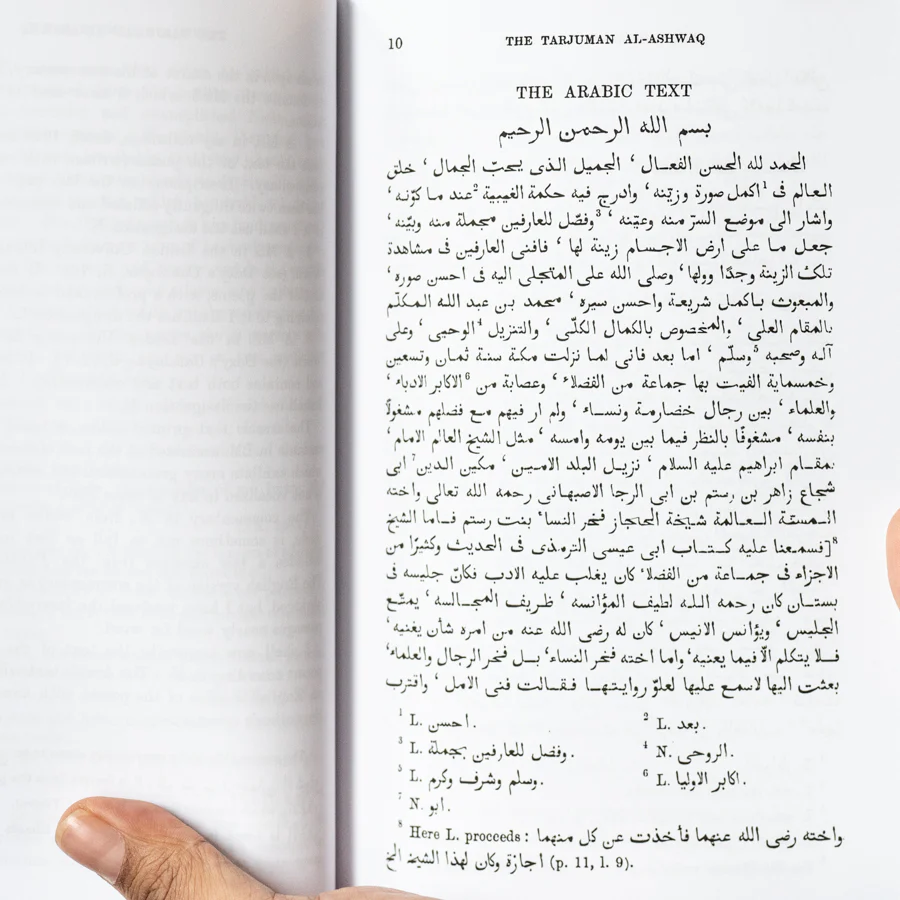 10
THE TARJUMAN AL-ASHWAQ
THE ARABIC TEXT
بسم الله الرحمن الرحيم
الحمد لله الحسن الفعـال ، الجميل الذى يحبّ الجمال ، خلق
العالم فى ¹اكمل صورة وزيّنه ، وادرج فيه حكمة الغيبية ²عند ما كوّنه ،
واشار الى موضع السرّ منه وعيّنه ، ³وفصّل للعارفين مجملة منه وبيّنه ،
جعل ما على ارض الاجسام زينة لها ، فافنى العارفين فى مشاهدة
تلك الزينة وجدًا وولها ، وصلى الله على المتجلى اليه فى احسن صوره ،
والمبعوث باكمل شريعة واحسن سيره ، محمد بن عبد الله المكلّم
بالمقام العلى ، والمخصوص بالكمال الكلّى ، والتنزيل ⁴الوحيى ، وعلى
آله وصحبه ⁵وسلّم ، اما بعد فانى لما نزلت مكة سنة ثمان وتسعين
وخمسماية الفيت بها جماعة من الفضلاء ، وعصابة من ⁶الاكابر الادباء ،
والعلماء ، بين رجال خضارمة ونساء ، ولم ار فيهم مع فضلهم مشغولًا
بنفسه ، مشغوفًا بالنظر فيما بين يومه وامسه ، مثل الشيخ العالم الامام ،
بمقام ابراهيم عليه السلام ، نزيل البلد الامين ، مكين الدين ⁷ابى
شجاع زاهر بن رستم بن ابى الرجا الاصبهانى رحمه الله تعالى واخته
المسنّة العالمة شيخة الحجاز فخر النساء بنت رستم فاما الشيخ
⁸[فسمعنا عليه كتاب ابى عيسى الترمذى فى الحديث وكثيرًا من
الاجزاء فى جماعة من الفضلاء كان يغلب عليه الادب فكانّ جليسه فى
بستان كان رحمه الله لطيف المؤانسه ، ظريف المجالسه ، يمتّع
الجليس ، ويؤانس الانيس ، كان له رضى الله عنه من امره شأن يغنيه ،
فلا يتكلم الّا فيما يعنيه ، واما اخته فخر النساء ، بل فخر الرجال والعلماء ،
بعثت اليها لاسمع عليها لعلوّ روايتها فقالت فنى الامل ، واقترب
¹ L. احسن.
² L. بعد.
³ L. وفضل للعارفين بجملة.
⁴ N. الروحى.
⁵ L. وسلم وشرف وكرم.
⁶ L. اكابر الاوليا.
⁷ N. ابو.
⁸ Here L. proceeds : واخته رضى الله عنهما فأخذت عن كل منهما
اجازة وكان لهذا الشيخ الخ (p. 11, l. 9).